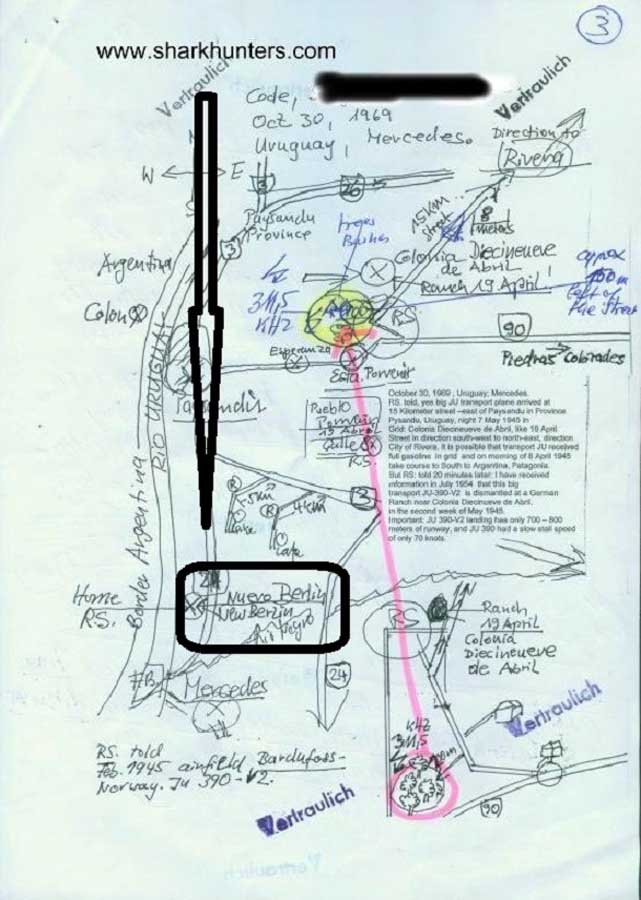 3
www.sharkhunters.com
Vertraulich
Vertraulich
Code,
Oct 30, 1969
Uruguay, Mercedes.
Direction to
Rivera
W E
3
26
Paysandu
Province
15 KM
Street
8
3
Argentina
Colonia
Diecineueve
de Abril
Ranch 19 April!
appox
left of
the Street
Colon
311,5
KHz
RS.
90
Esperanza
Piedras Colorades
Esta. Porvenir
Paysandu
RIO URUGUAI
Pueblo
19 Abril
RS.
October 30, 1969 ; Uruguay, Mercedes.
RS. told, yes big JU transport plane arrived at
15 Kilometer street –east of Paysandu in Province
Pysandu, Uruguay, night 7 May 1945 in
Grid: Colonia Diecineueve de Abril, like 19 April.
Street in direction south-west to north-east, direction
City of Rivera, it is possible that transport JU received
full gasoline in grid and on morning of 8 April 1945
take course to South to Argentina, Patagonia.
But RS: told 20 minutes later: I have received
information in July 1954 that this big
transport JU-390-V2 is dismantled at a German
Ranch near Colonia Diecineueve de Abril,
in the second week of May 1945.
Important: JU 390-V2 landing has only 700 – 800
meters of runway, and JU 390 had a slow stall speed
of only 70 knots.
R
5 km
R
4 km
3
Lake
Lake
Border Argentina
24
Home
RS.
Nuevo Berlin
New Berlin
Rio Negro
RS
Ranch
19 April
Colonia
Diecineueve
de Abril
24
Mercedes
Vertraulich
KHZ
311,5
RS. told
Feb. 1945 ainfield Bardufoss-
Norway. Ju 390-V2.
90
Vertraulich